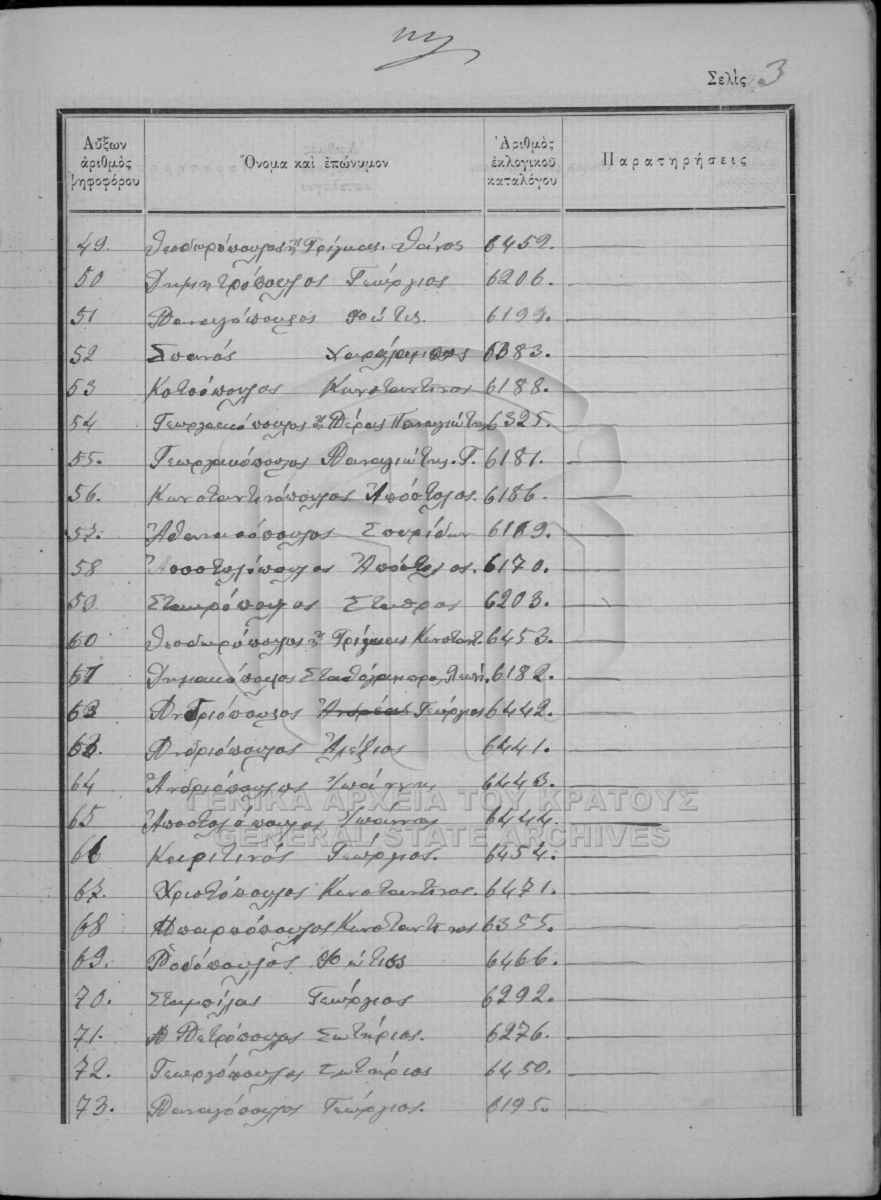 Σελὶς 3
Αὔξων ἀριθμὸς ψηφοφόρου Ὄνομα καὶ ἐπώνυμον Ἀριθμὸς ἐκλογικοῦ καταλόγου Παρατηρήσεις
49. Θεοδωρόπουλος ἢ Γρίγκας Θάνος 6459.
50 Δημητρόπουλος Γεώργιος 6206.
51 Παναγόπουλος Φώτις. 6199.
52 Σπανός Χαράλαμπος 6383.
53 Κοτσόπουλος Κωνσταντῖνος 6188.
54 Γεωργακόπουλος ἢ Παναγιώτης 6325.
55. Γεωργακόπουλος Παναγιώτης. Γ. 6181.
56. Κωνσταντινόπουλος Ἀπόστολος. 6186.
57. Ἀθανασόπουλος Σπυρίδων 6169.
58 Ἀποστολόπουλος Ἀπόστολος. 6170.
59. Σταυρόπουλος Σταῦρος 6203.
60 Θεοδωρόπουλος ἢ Γρίγκας Κωνσταντ. 6453.
61 Δημακόπουλος 6182.
62 Ἀνδριόπουλος Ἀνδρέας Γεώργιος 6442.
63. Ἀνδριόπουλος Ἀλέξιος 6441.
64 Ἀνδριόπουλος Ἰωάννης 6443.
65 Ἀποστολόπουλος Ἰωάννης 6444.
66 Γεώργιος. 6454.
67. Χριστόπουλος Κωνσταντῖνος. 6471.
68 Κωνσταντῖνος 6355.
69. Ροδόπουλος Φώτιος 6466.
70. Σταμπίλας Γεώργιος 6292.
71. Πετρόπουλος Σωτήριος. 6276.
72. Γεωργόπουλος Σωτήριος 6450.
73. Παναγόπουλος Γεώργιος. 6195.
ΓΕΝΙΚΑ ΑΡΧΕΙΑ ΤΟΥ ΚΡΑΤΟΥΣ
GENERAL STATE ARCHIVES